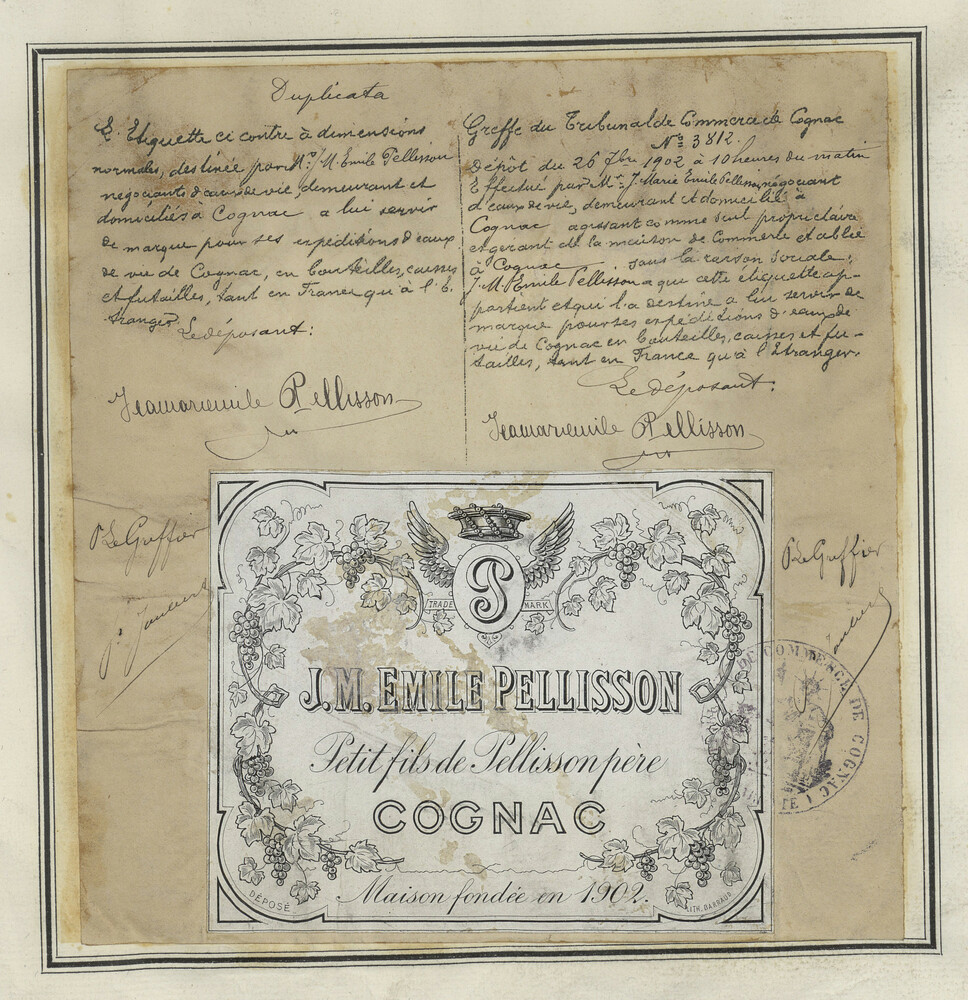 Duplicata
L'Etiquette ci contre à dimensions
normales, destinée par Mr. J. M. Emile Pellisson
négociants d'eaux de vie, demeurant et
domiciliés à Cognac a lui servir
de marque pour ses expéditions d'eaux
de vie de Cognac, en bouteilles, caisses
et futailles, tant en France qu'à l'E-
tranger.
Le déposant:
Jeanmariemile Pellisson
Greffe du Tribunal de Commerce de Cognac
No. 3812.
Dépôt du 26 7bre 1902 à 10 heures du matin
Effectué par Mr. J. Marie Emile Pellisson, négociant
d'eaux de vie, demeurant et domicilié à
Cognac agissant comme seul propriétaire
et gérant de la maison de Commerce établie
à Cognac sous la raison sociale:
J. M. Emile Pellisson a que cette étiquette ap-
partient et qu'il l'a destine a lui servir de
marque pour ses expéditions d'eaux de
vie de Cognac en bouteilles, caisses et fu-
tailles, tant en France qu'à l'Etranger.
Le déposant:
Jeanmariemile Pellisson
P. Le Greffier
P. Le Greffier
P
TRADE MARK
J. M. EMILE PELLISSON
Petit fils de Pellisson père
COGNAC
Maison fondée en 1902.
DÉPOSÉ
LITH. BARRAUD
DE COMMERCE DE COGNAC